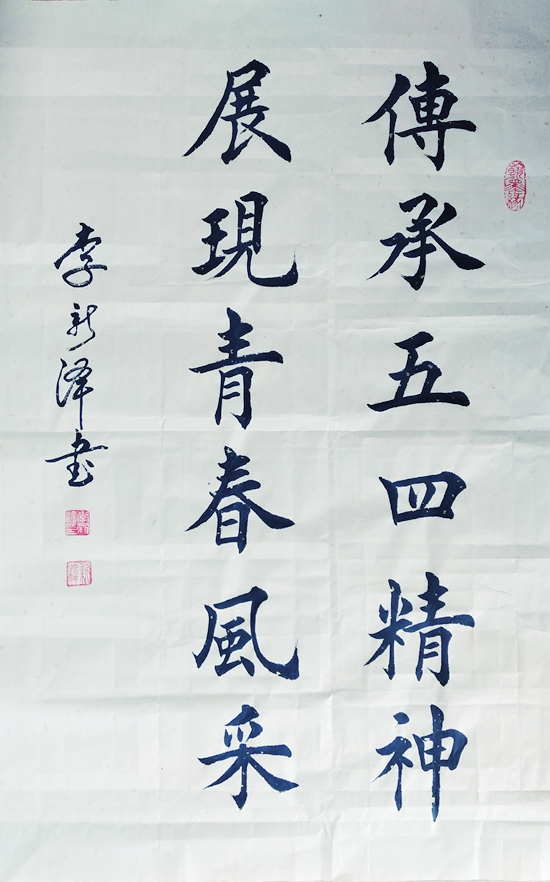 傳承五四精神
展現青春風采
李新泽書